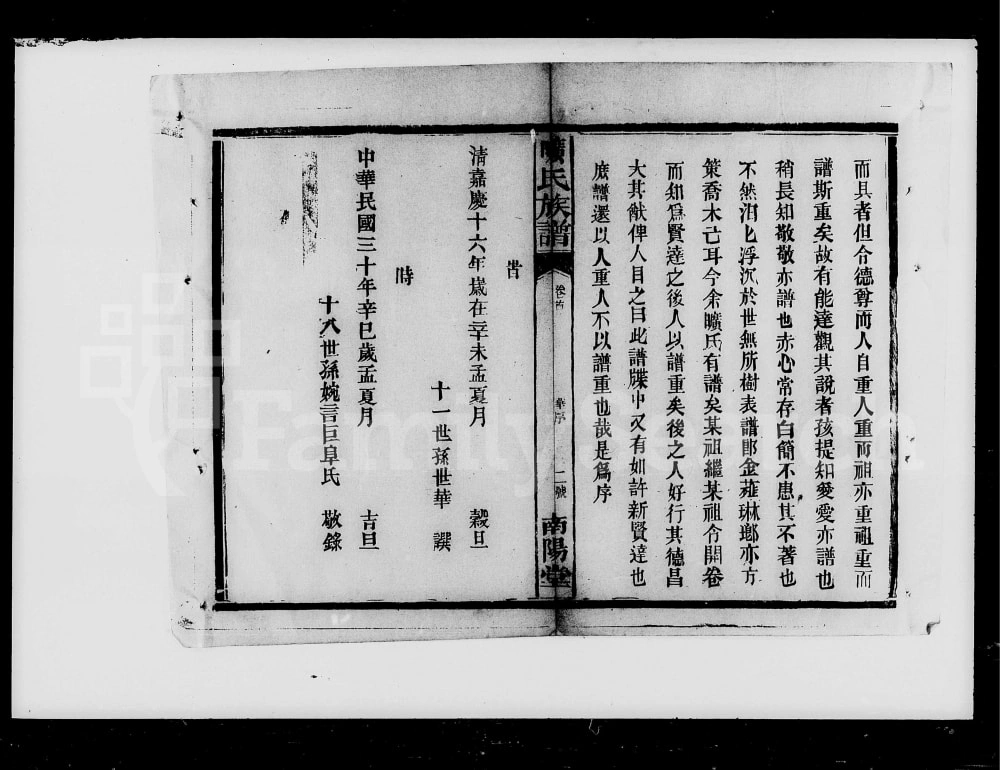 而具者但令德尊而人自重人重而祖亦重祖重而
譜斯重矣故有能達觀其說者孩提知愛愛亦譜也
稍長知敬敬亦譜也赤心常存白簡不患其不著也
不然汨匕浮沉於世無所樹表譜即金薤琳瑯亦方
策喬木亡耳今余曠氏有譜矣某祖繼某祖令開卷
而知爲賢達之後人以譜重矣後之人好行其德昌
大其猷俾人目之曰此譜牒中又有如許新賢達也
庶譜還以人重人不以譜重也哉是爲序
曠氏族譜 卷首 華序 二號 南陽堂
旹
清嘉慶十六年歲在辛未孟夏月 穀旦
十一世孫世華 譔
時
中華民國三十年辛巳歲孟夏月 吉旦
十八世孫婉言巨阜氏 敬錄
FamilySearch